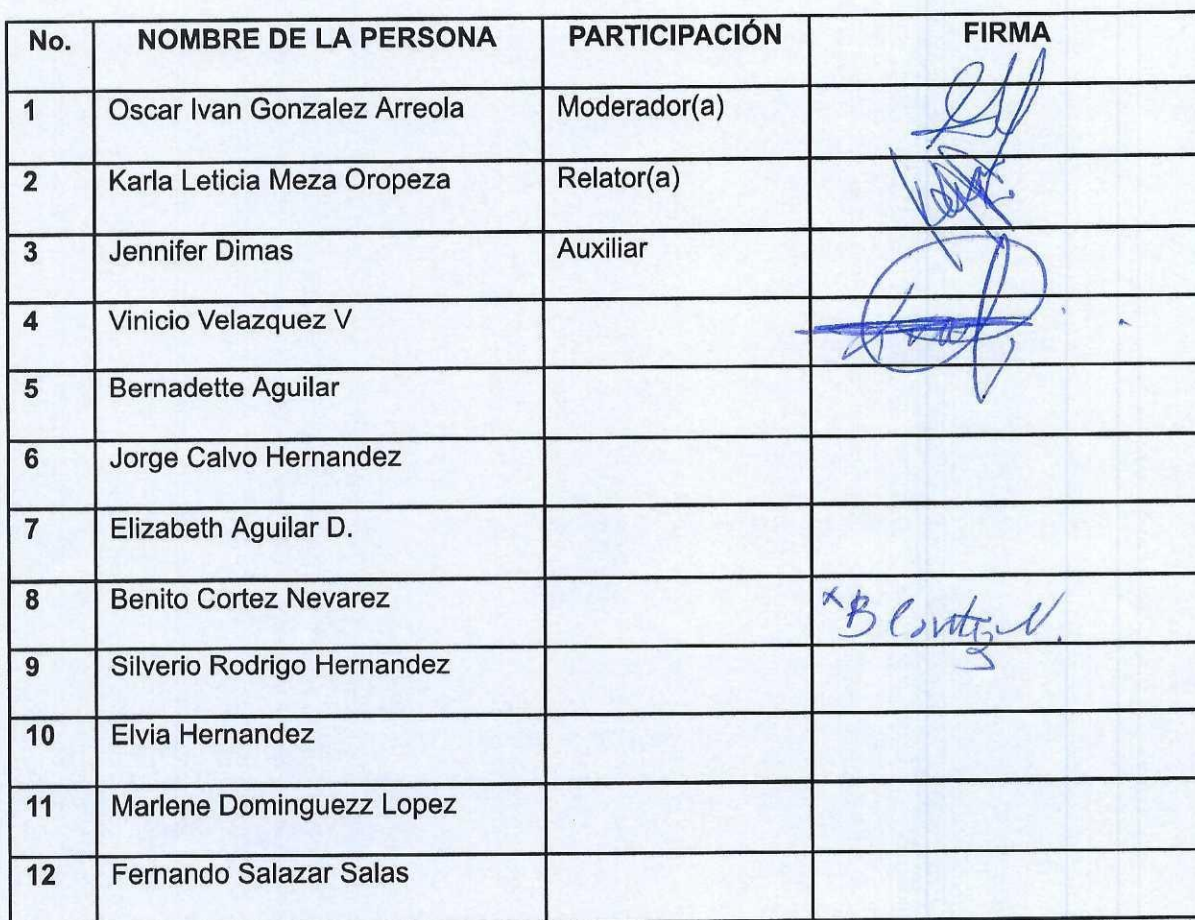 No. NOMBRE DE LA PERSONA PARTICIPACIÓN FIRMA
1 Oscar Ivan Gonzalez Arreola Moderador(a)
2 Karla Leticia Meza Oropeza Relator(a)
3 Jennifer Dimas Auxiliar
4 Vinicio Velazquez V
5 Bernadette Aguilar
6 Jorge Calvo Hernandez
7 Elizabeth Aguilar D.
8 Benito Cortez Nevarez B Cortez N.
9 Silverio Rodrigo Hernandez
10 Elvia Hernandez
11 Marlene Dominguezz Lopez
12 Fernando Salazar Salas